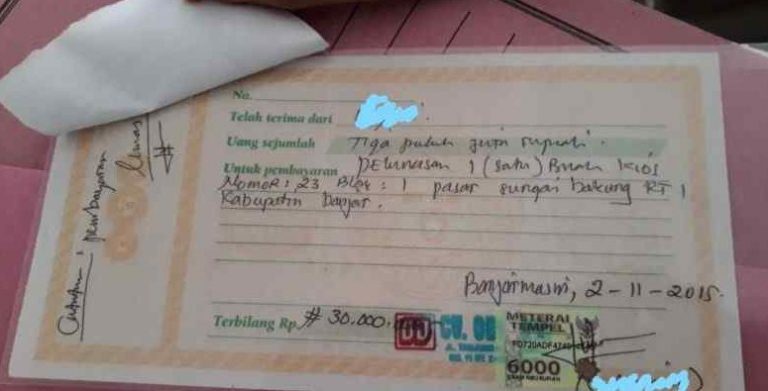 No.
Telah terima dari
Uang sejumlah Tiga puluh juta rupiah.
Untuk pembayaran PElunasan 1 (satu) Buah kios
Nomor: 23 Blok: 1 pasar sungai bakung RT 1
Kabupatin banjar.
Banjarmasin, 2-11-2015.
Terbilang Rp. # 30.000.
CV.
METERAI
TEMPEL
6000
Catatan: pembayaran
lunas